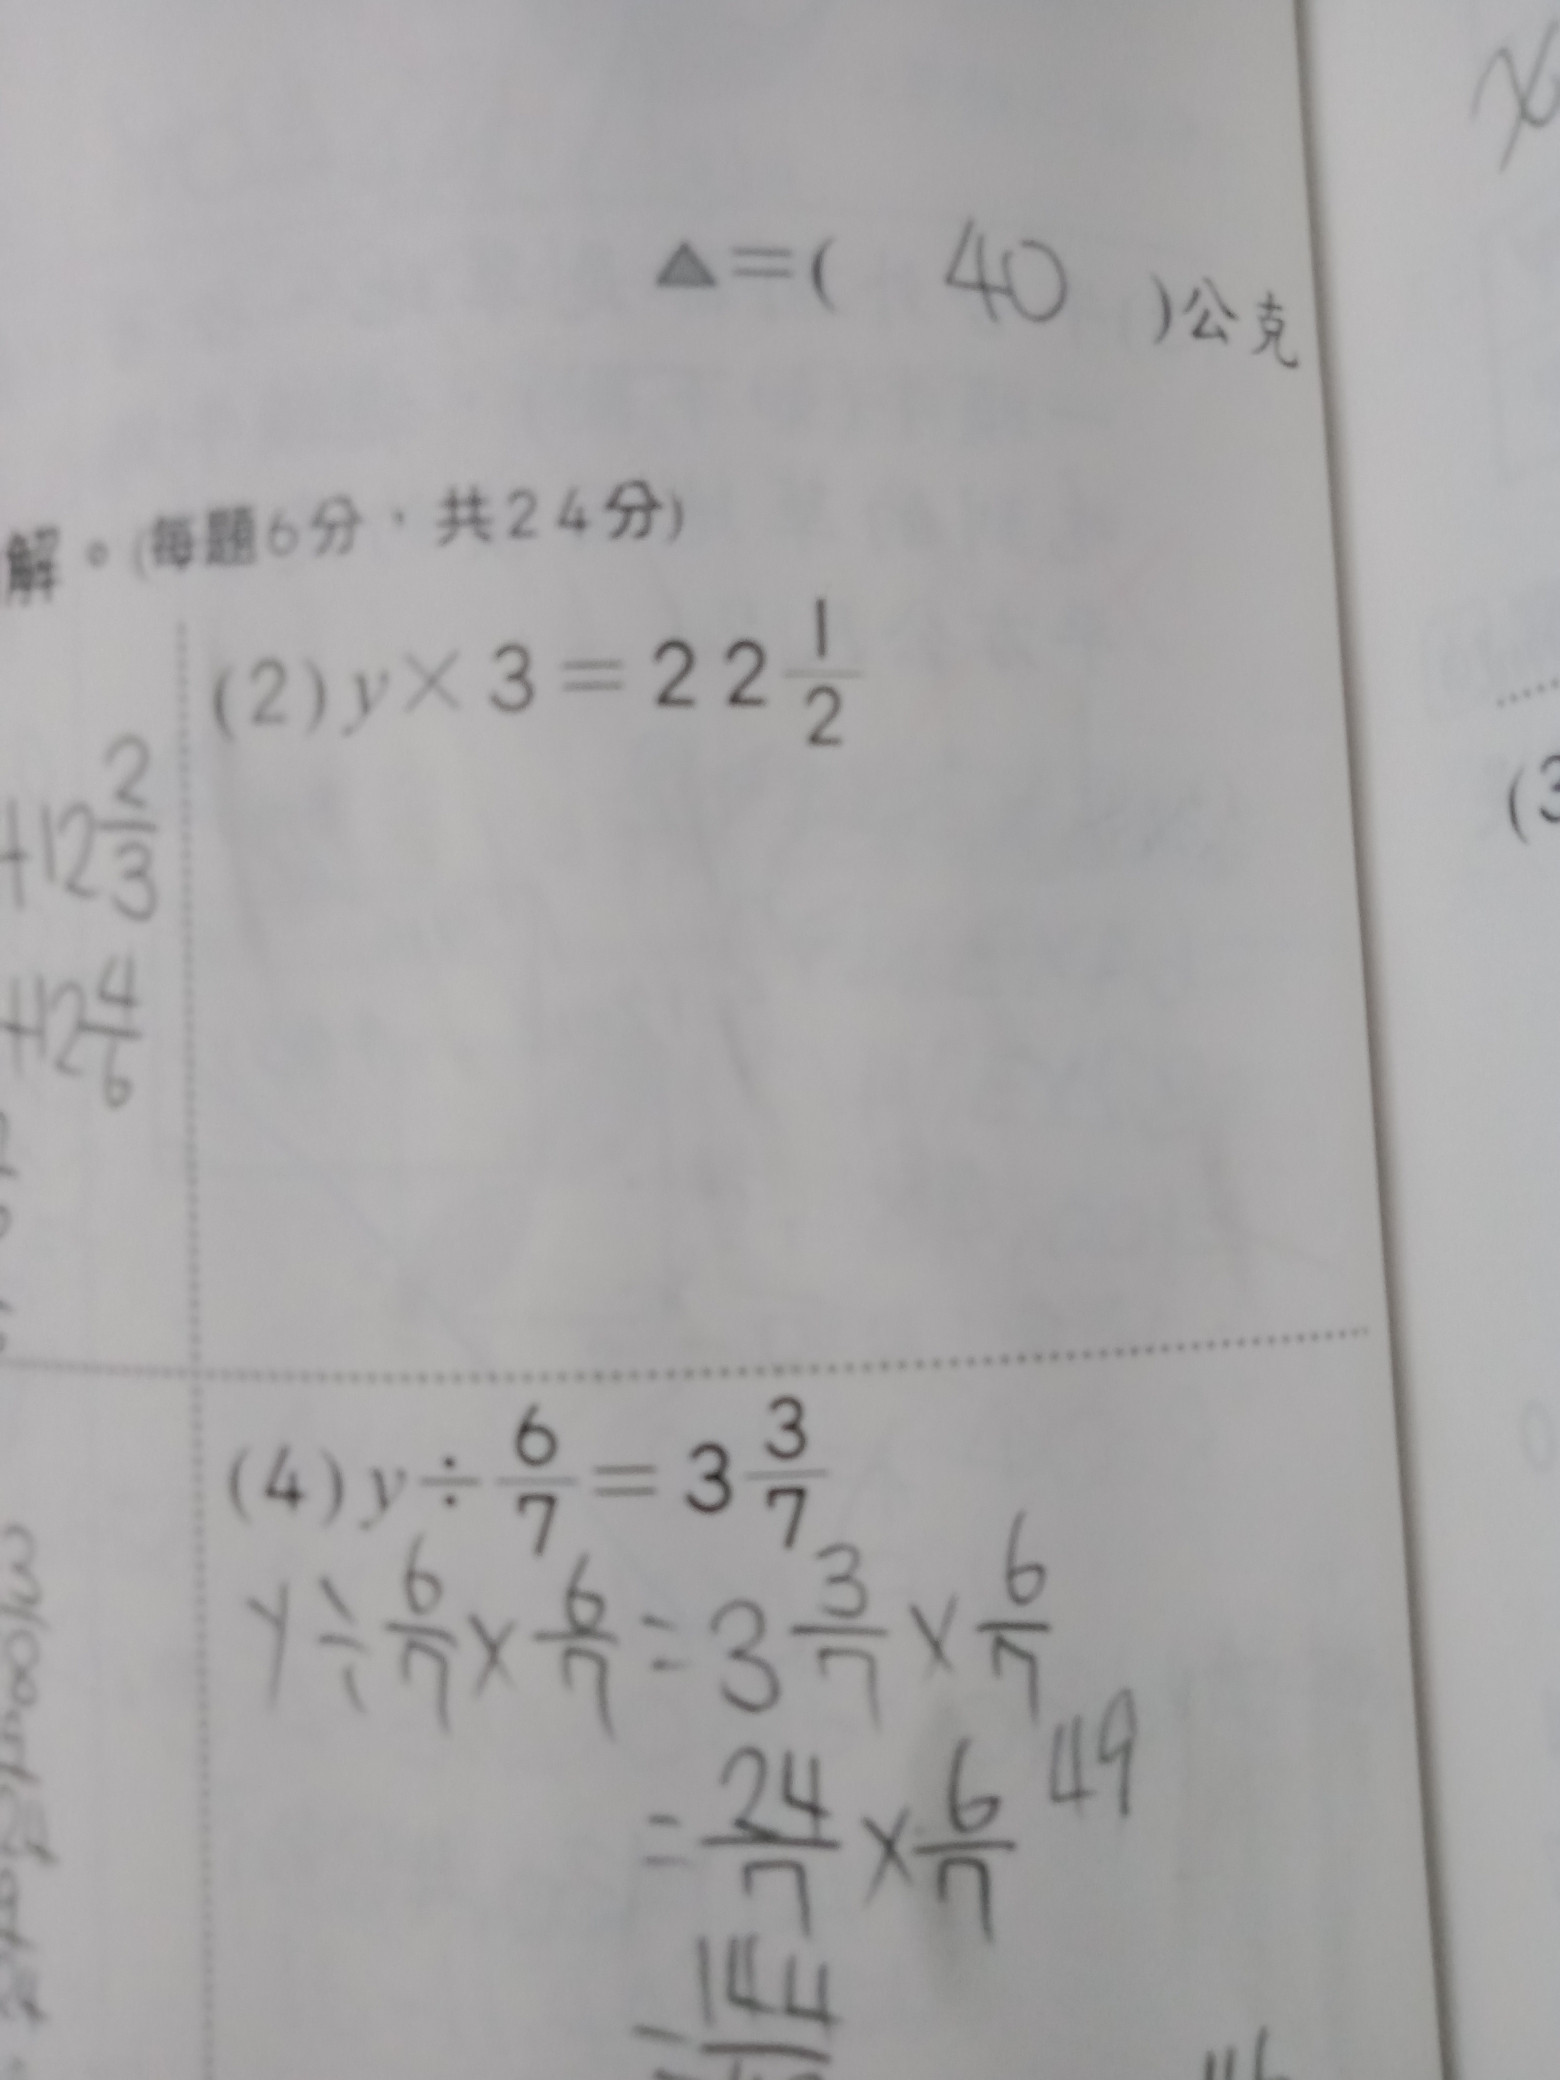 ▲=( 40 )公克
解。(每題6分，共24分)
(2) y × 3 = 22 1/2
+12 2/3
+12 4/6
(3
(4) y ÷ 6/7 = 3 3/7
y ÷ 6/7 × 6/7 = 3 3/7 × 6/7
= 24/7 × 6/7 49
= 144